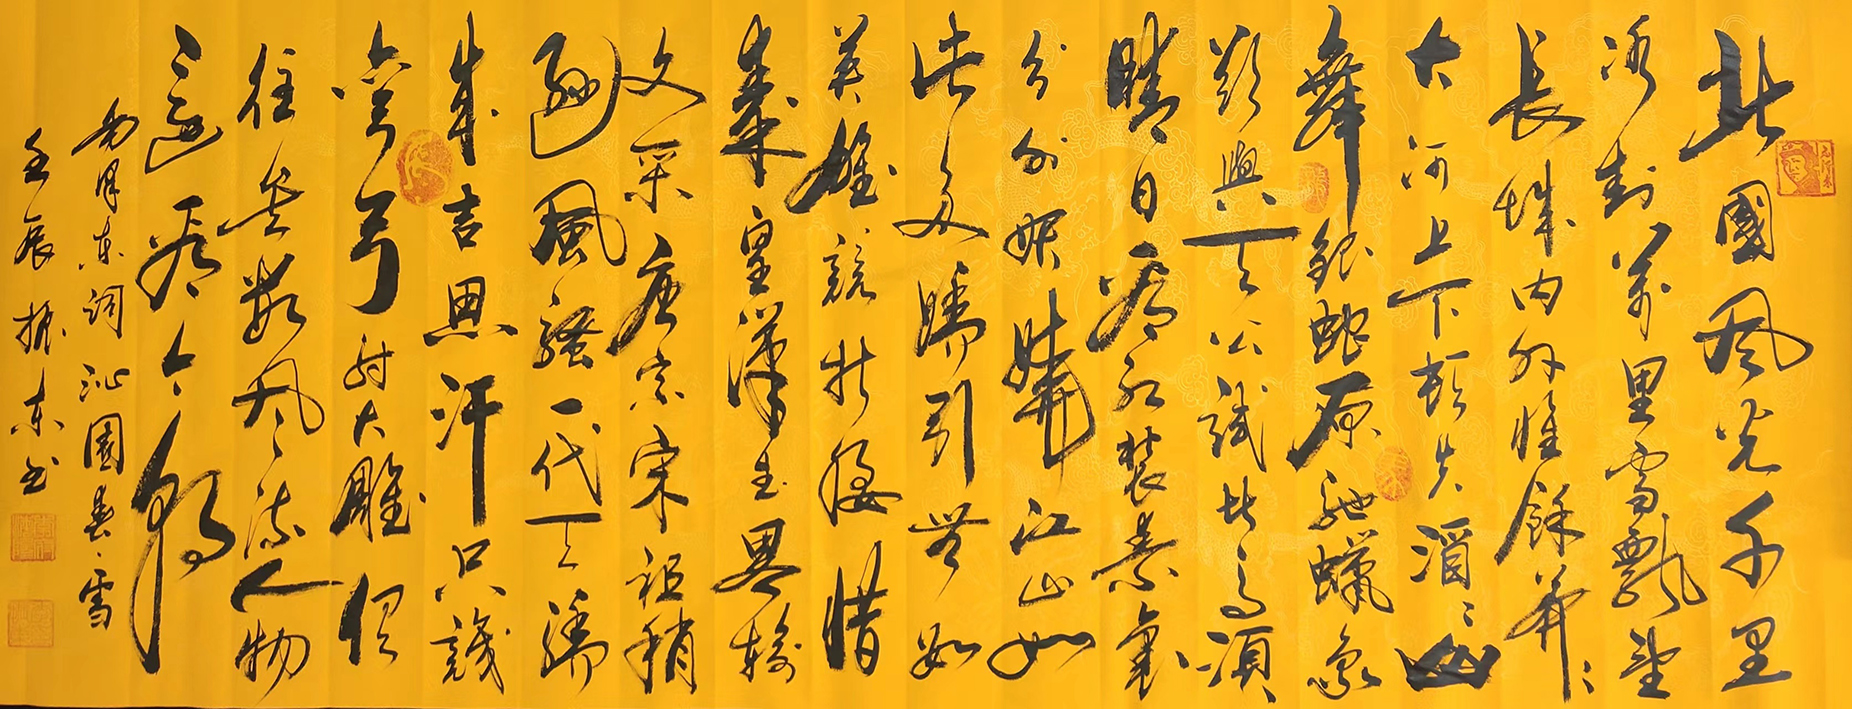 北國风光千里
冰封萬里雪飄望
長城内外惟餘莽莽
大河上下頓失滔滔山
舞銀蛇原馳蠟象
欲與天公試比高須
晴日看紅裝素裹
分外妖嬈江山如
此多嬌引無數
英雄競折腰惜
秦皇漢武略輸
文采唐宗宋祖稍
遜風騷一代天驕
成吉思汗只識
彎弓射大雕俱
往矣數风流人物
還看今朝
毛澤东詞沁園春雪
壬辰振东书